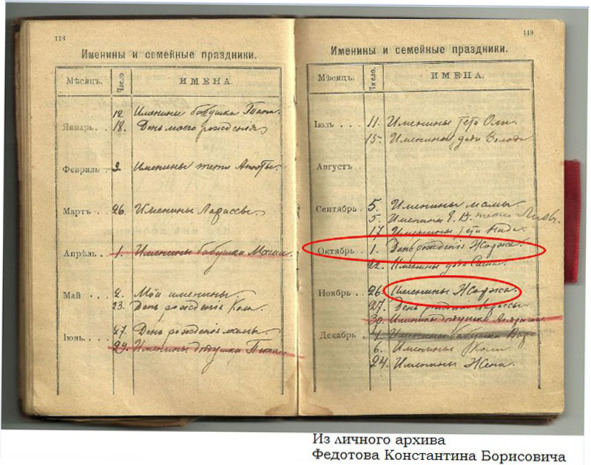 118
Именины и семейные праздники.
Мѣсяцъ.
Число.
ИМЕНА.
Январь . .
12. Именины бабушки
18. День моего рожденія
Февраль .
3. Именины тети Анюты
Мартъ . .
26. Именины Ларисы
Апрѣль .
1. Именины бабушки
Май . . .
2. Мои именины
23. День рожденія Коли
Іюнь . . .
27. День рожденія мамы
29. Именины дѣдушки
119
Именины и семейные праздники.
Мѣсяц.
Число.
ИМЕНА.
Іюль . . .
11. Именины тети Оли
15. Именины дяди Володи
Августъ .
Сентябрь .
5. Именины мамы
5. Именины
17. Именины тети
Октябрь .
1. День рожденія
22. Именины дяди Саши
Ноябрь .
26. Именины
27. День рожденія
30. Именины дѣдушки
Декабрь .
4. Именины бабушки
6. Именины Коли
24. Именины Жени
Из личного архива
Федотова Константина Борисовича